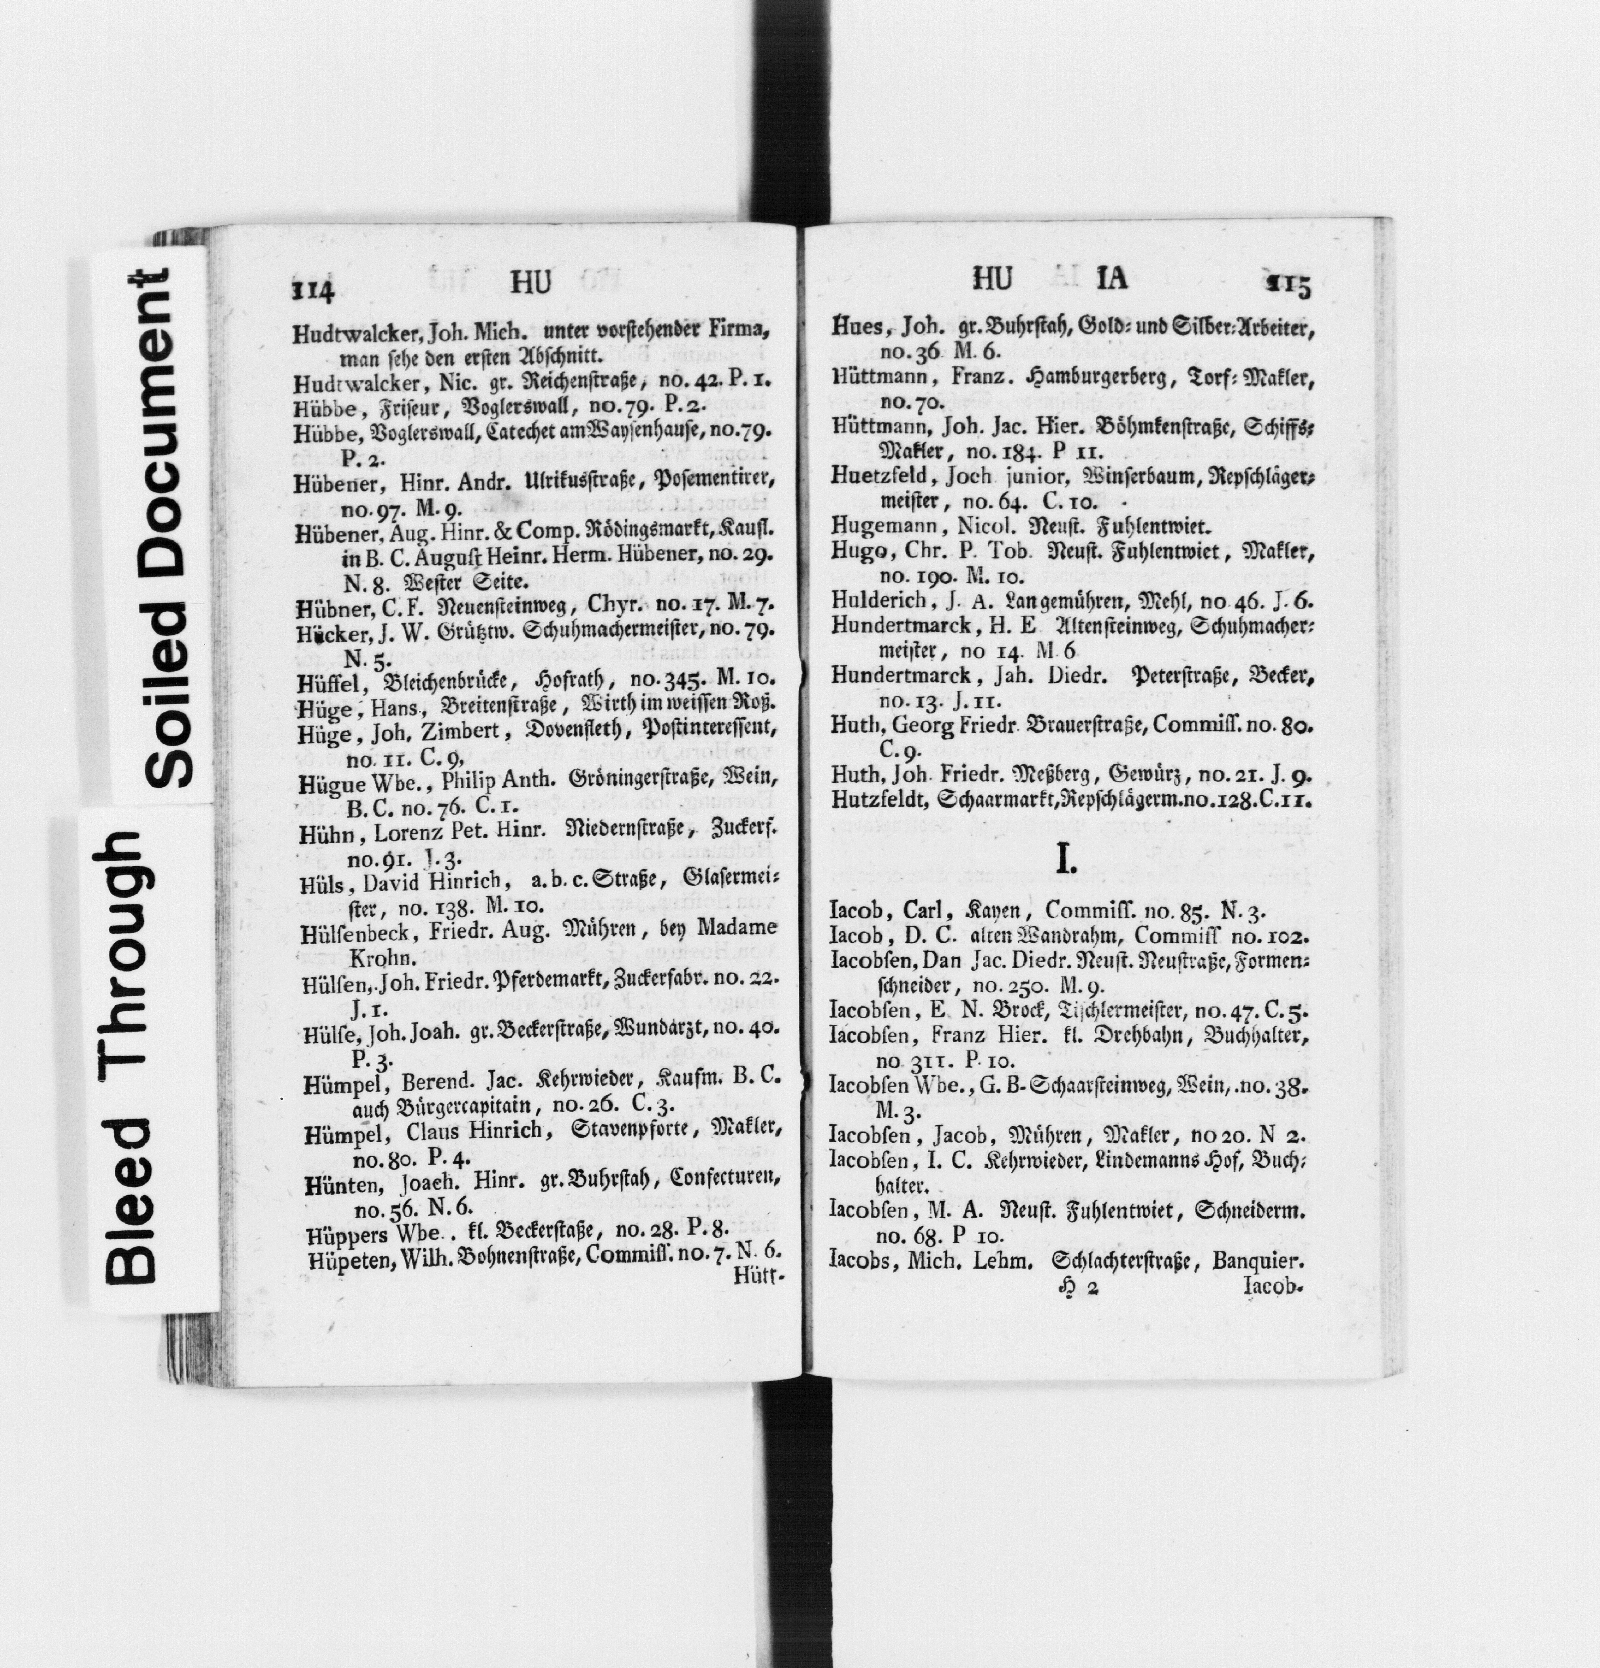 Soiled Document
Bleed Through
114 HU
Hudtwalcker, Joh. Mich. unter vorstehender Firma,
man sehe den ersten Abschnitt.
Hudtwalcker, Nic. gr. Reichenstraße, no. 42. P. 1.
Hübbe, Friseur, Voglerswall, no. 79. P. 2.
Hübbe, Voglerswall, Catechet am Waysenhause, no. 79.
P. 2.
Hübener, Hinr. Andr. Ulrikusstraße, Posementirer,
no. 97. M. 9.
Hübener, Aug. Hinr. & Comp. Rödingsmarkt, Kaufl.
in B. C. August Heinr. Herm. Hübener, no. 29.
N. 8. Wester Seite.
Hübner, C. F. Neuensteinweg, Chyr. no. 17. M. 7.
Hücker, J. W. Grütztw. Schuhmachermeister, no. 79.
N. 5.
Hüffel, Bleichenbrücke, Hofrath, no. 345. M. 10.
Hüge, Hans, Breitenstraße, Wirth im weissen Roß.
Hüge, Joh. Zimbert, Dovenfleth, Postinteressent,
no. 11. C. 9,
Hügue Wbe., Philip Anth. Gröningerstraße, Wein,
B. C. no. 76. C. 1.
Hühn, Lorenz Pet. Hinr. Niedernstraße, Zuckerf.
no. 91. J. 3.
Hüls, David Hinrich, a. b. c. Straße, Glasermei-
ster, no. 138. M. 10.
Hülsenbeck, Friedr. Aug. Mühren, bey Madame
Krohn.
Hülsen, Joh. Friedr. Pferdemarkt, Zuckerfabr. no. 22.
J. 1.
Hülse, Joh. Joah. gr. Beckerstraße, Wundarzt, no. 40.
P. 3.
Hümpel, Berend. Jac. Kehrwieder, Kaufm. B. C.
auch Bürgercapitain, no. 26. C. 3.
Hümpel, Claus Hinrich, Stavenpforte, Makler,
no. 80. P. 4.
Hünten, Joach. Hinr. gr. Buhrstah, Confecturen,
no. 56. N. 6.
Hüppers Wbe.. kl. Beckerstaße, no. 28. P. 8.
Hüpeten, Wilh. Bohnenstraße, Commiss. no. 7. N. 6.
Hütt-
HU IA 115
Hues, Joh. gr. Buhrstah, Gold- und Silber-Arbeiter,
no. 36 M. 6.
Hüttmann, Franz. Hamburgerberg, Torf-Makler,
no. 70.
Hüttmann, Joh. Jac. Hier. Böhmkenstraße, Schiffs-
Makler, no. 184. P 11.
Huetzfeld, Joch junior, Winserbaum, Repschläger-
meister, no. 64. C. 10.
Hugemann, Nicol. Neust. Fuhlentwiet.
Hugo, Chr. P. Tob. Neust. Fuhlentwiet, Makler,
no. 190. M. 10.
Hulderich, J. A. Langemühren, Mehl, no 46. J. 6.
Hundertmarck, H. E Altensteinweg, Schuhmacher-
meister, no 14. M 6
Hundertmarck, Jah. Diedr. Peterstraße, Becker,
no. 13. J. 11.
Huth, Georg Friedr. Brauerstraße, Commiss. no. 80.
C. 9.
Huth, Joh. Friedr. Meßberg, Gewürz, no. 21. J. 9.
Hutzfeldt, Schaarmarkt, Repschlägerm. no. 128. C. 11.
I.
Iacob, Carl, Kayen, Commiss. no. 85. N. 3.
Iacob, D. C. alten Wandrahm, Commiss no. 102.
Iacobsen, Dan Jac. Diedr. Neust. Neustraße, Formen-
schneider, no. 250. M. 9.
Iacobsen, E. N. Brock, Tischlermeister, no. 47. C. 5.
Iacobsen, Franz Hier. kl. Drehbahn, Buchhalter,
no 311. P. 10.
Iacobsen Wbe., G. B. Schaarsteinweg, Wein, no. 38.
M. 3.
Iacobsen, Jacob, Mühren, Makler, no 20. N 2.
Iacobsen, I. C. Kehrwieder, Lindemanns Hof, Buch-
halter.
Iacobsen, M. A. Neust. Fuhlentwiet, Schneiderm.
no. 68. P 10.
Iacobs, Mich. Lehm. Schlachterstraße, Banquier.
H 2 Iacob-